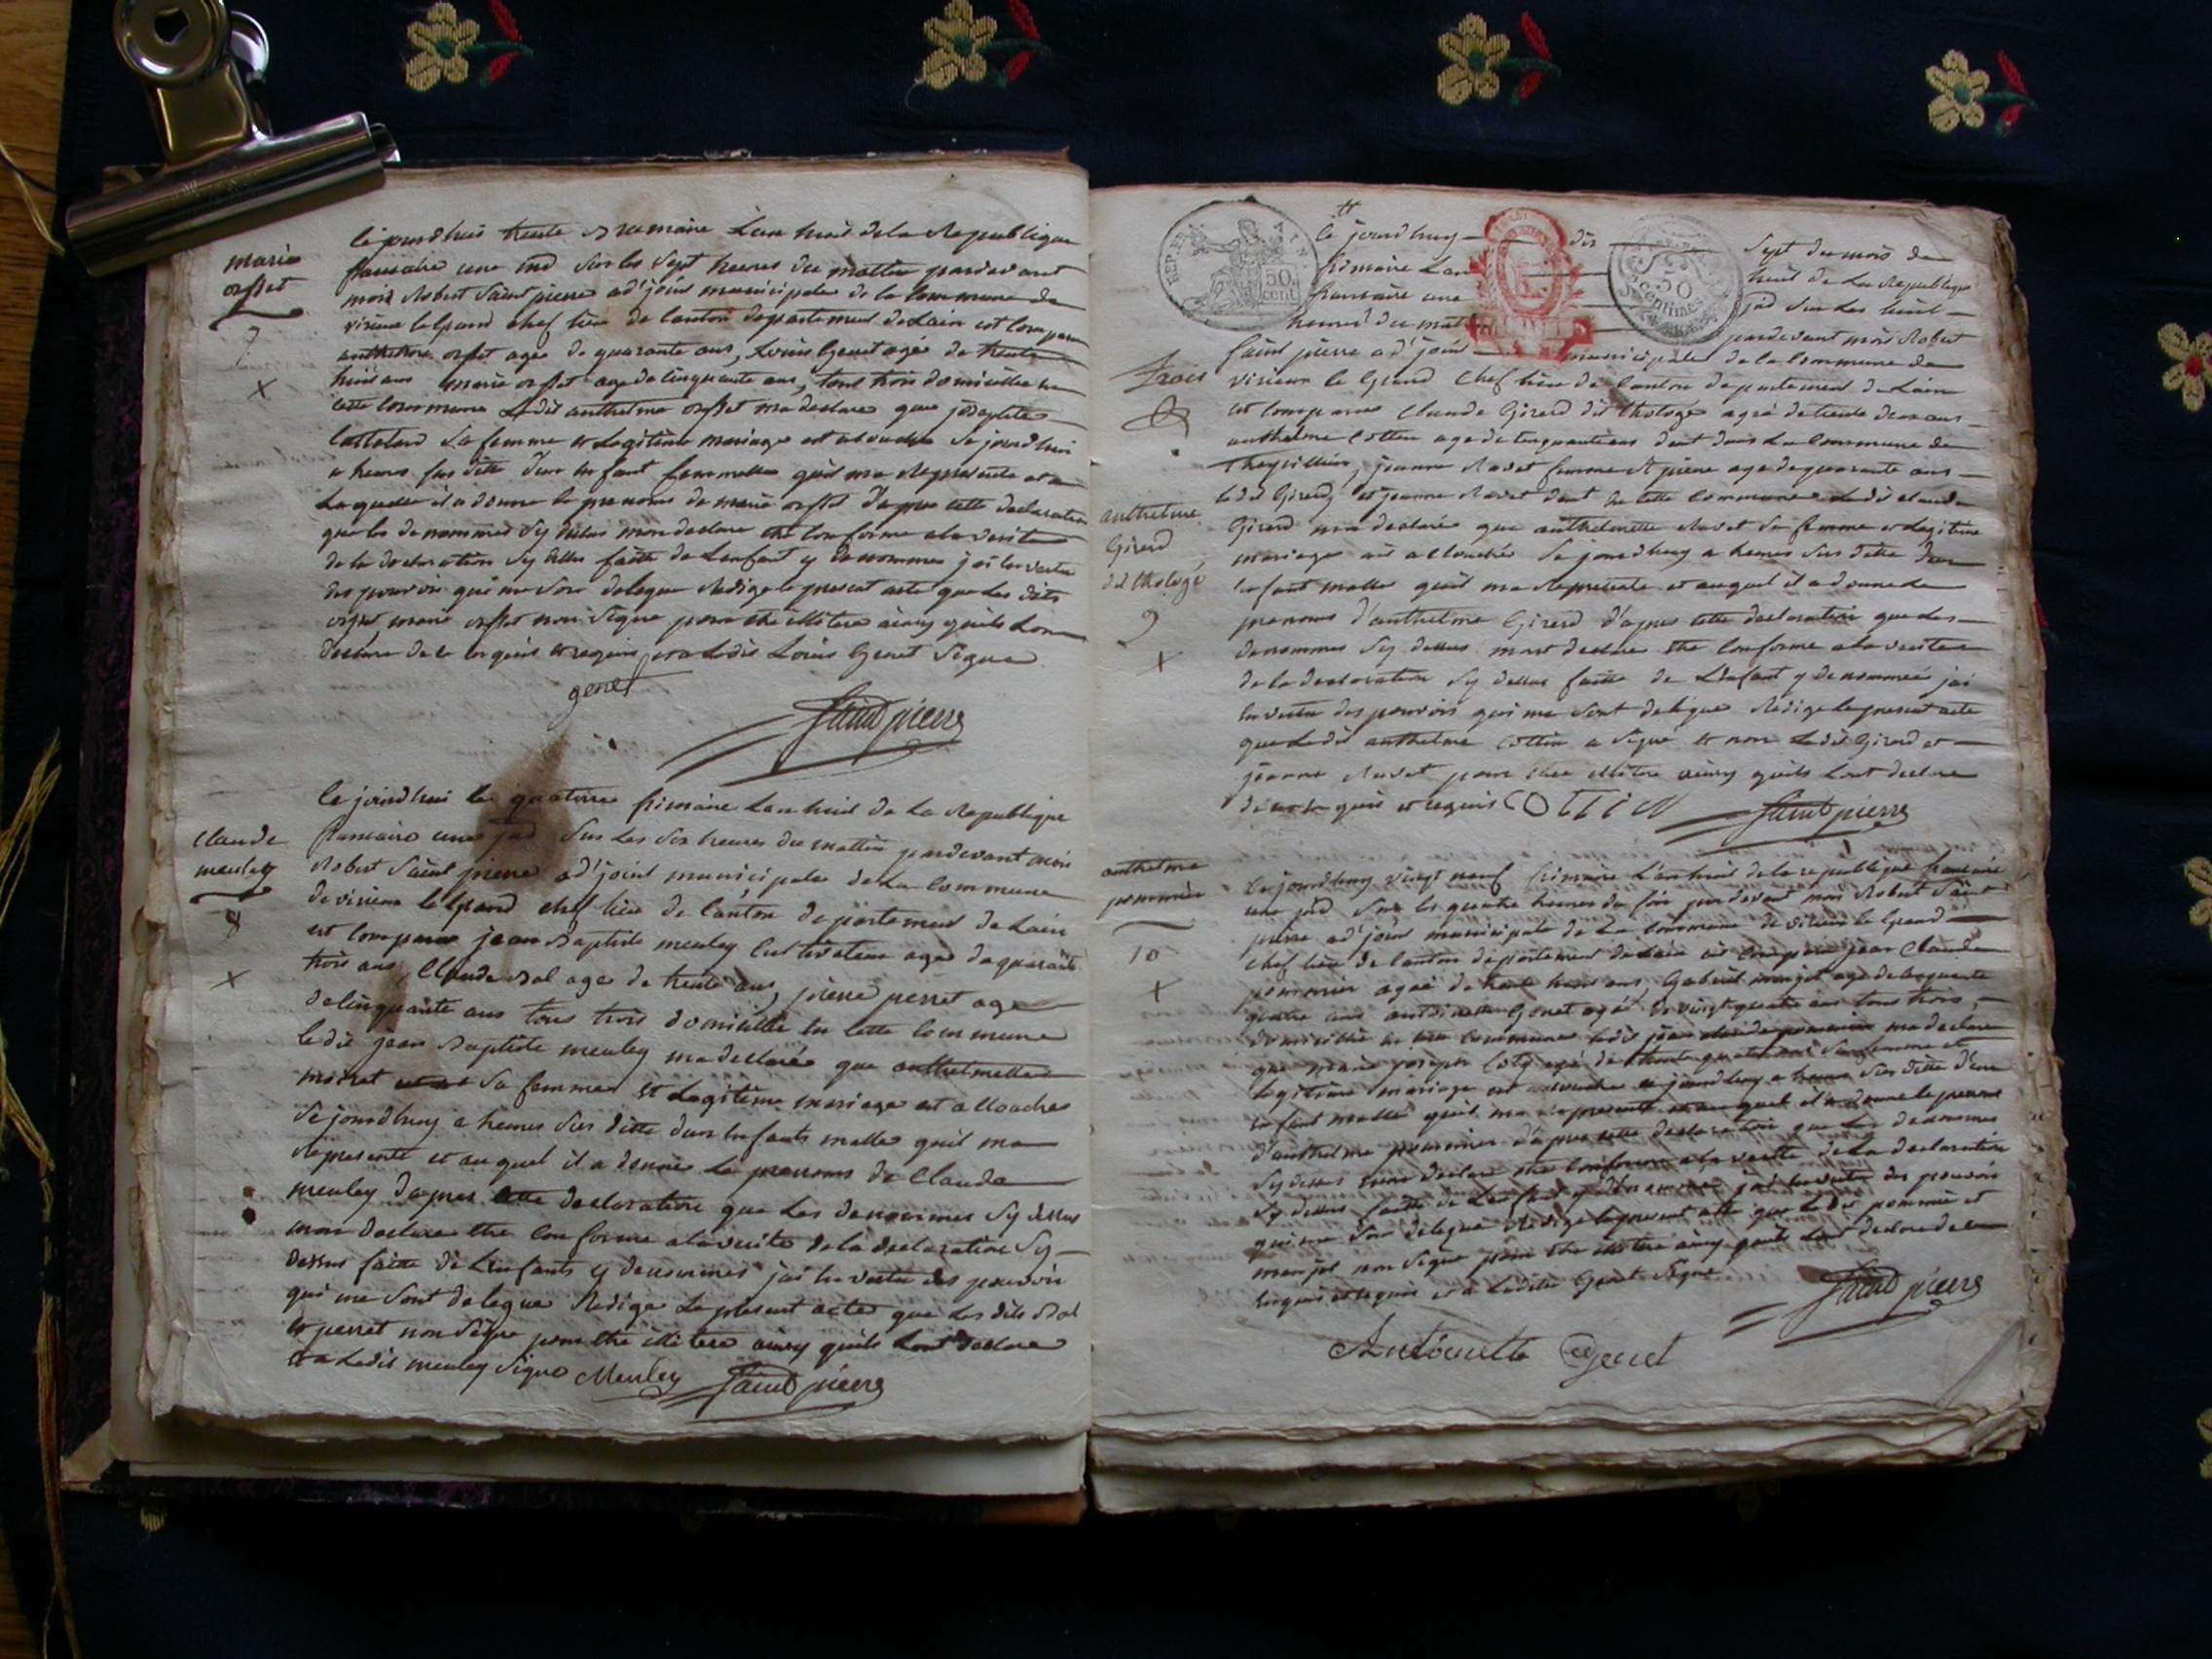 marie
orsset
7
X
le jourdhuis trente Brumaire Lan huit dela Republique
francaire une ind sur les sept heures du mattin pardevant
moix Robert Saint pierre ad'joint municipale de la Commune de
virieux le Grand chef lieu de Canton departement de Lain est Compa
anthelme orsset age de quarante ans, Louis Genet agé de trente
huit ans marie orsset age de Cinquante ans, tout trois domicillie en
cette Commune Ledit anthelme orsset ma declare que
La femme et Legitime mariage est acouchée Se jourdhui
a heures sus ditte d'un Enfant femmelle quil ma Represente et a
Laquelle il a donné le prenoms de marie orsset d'apres cette declaration
que les denommes sy dessus mon declare etre Conforme a la verite
de la declaration sy dessus faitte de Lenfant y denommes j'ai En vertu
des pouvoir qui me son delegue Redige le present acte que Les dits
orsset marie orsset non signe pour etre illitere ainsy quils Lon
declare de ce enquis et requis et a Ledit Louis Genet Signe
genet
Saint pierre
Claude
meuley
8
X
Le jourdhui le quatorze frimaire Lan huit de La Republique
francaire une jnd sur Les six heures du mattin pardevant moix
Robert Saint pierre ad'joint municipale de La Commune
de virieux le Grand chef lieu de Canton departement de Lain
est Comparue jean Baptiste meuley Cultivateur age de quarante
trois ans, Claude Bal age de trente ans, pierre perret age
de Cinquante ans tous trois domicillie En Cette Commune
le dit jean Baptiste meuley ma declarée que anthelmette
moiret sa femme et Legitime mariage est a Couchee
Se jourdhuy a heures sus ditte dun Enfants malle quil ma
Represente et au quel il a donnée Le prenoms de Claude
meuley dapres cette declaration que Les denommes sy dessus
mon declare etre Conforme a la verite de la declaration sy
dessus faitte de Lenfants y denommes jai En vertu des pouvoir
qui me sont delegue Redige Le present acte que Les dits Bal
et perret non signe pour etre illitere ainsy quils Lont declare
et a Ledit meuley signe Meuley Saint pierre
REP. FRA
50
cent
50
Centimes
Le jourdhuy dix sept du mois de
frimaire Lan huit de La Republique
francaire une jnd sur Les huit
heures du mattin pardevant moix Robert
Saint pierre ad'joint municipale de la Commune de
trois
virieux le Grand Chef lieu de Canton departement de Lain
est Comparue Claude Girerd dit Chologé agée de trente deux ans
anthelme Cottin age de Cinquante ans dans La Commune de
Theyzillieu, jeanne Ravet femme St pierre age de quarante ans
ledit Girerd, et jeanne Ravet de cette Commune Ledit claude
anthelme
Girerd
dit Chologé
9
X
Girerd ma declarée que anthelmette Ravet sa femme et Legitime
mariage ait a Couchée Se jourdhuy a heures sus ditte dun
Enfant malle quil ma Represente et auquel il a donne Le
prenoms d'anthelme Girerd d'apres cette declaration que Les
denommes sy dessus mont declare etre Conforme a la verite
de la declaration sy dessus faitte de Lenfant y denommeé jai
En vertu des pouvoir qui me sont delegue Redige le present acte
que Ledit anthelme Cottin a signe et non Ledit Girerd et
jeanne Ravet pour etre illitere ainsy quils Lont declare
de ce En quis et requis COTTIN Saint pierre
anthelme
pommier
10
X
Le jourdhuy vingt neuf frimaire Lan huit de la republique francaire
une jnd sur les quatre heures du soir pardevant moix Robert Saint
pierre ad'joint municipale de La Commune de virieux le Grand
chef lieu de Canton departement de Lain est Comparue jean Claude
pommier ageé de trente huit ans, Gabriel monjot age de Cinquante
quatre ans antoinette Genet agée de vingt quatre ans tous trois
domicillie en cette Commune ledit jean claude pommier ma declare
que marie joseph agé de trente quatre ans sa femme et
Legitime mariage est acouchée Se jourdhuy a heures sus ditte d'un
enfant malle quil ma represente et au quel il a donne le prenoms
d'anthelme pommier d'apres cette declaration que Les denommes
sy dessus mon declare etre Conforme a la verite de La declaration
sy dessus faitte de Lenfant y denommes jai En vertu des pouvoir
qui me son delegue Redige le present acte que Le dit pommier et
monjot non signe pour etre illitere ainsy quils Lont declare de ce
Enquis et requis et a Ladite Genet signe
Saint pierre
Antoinette Genet